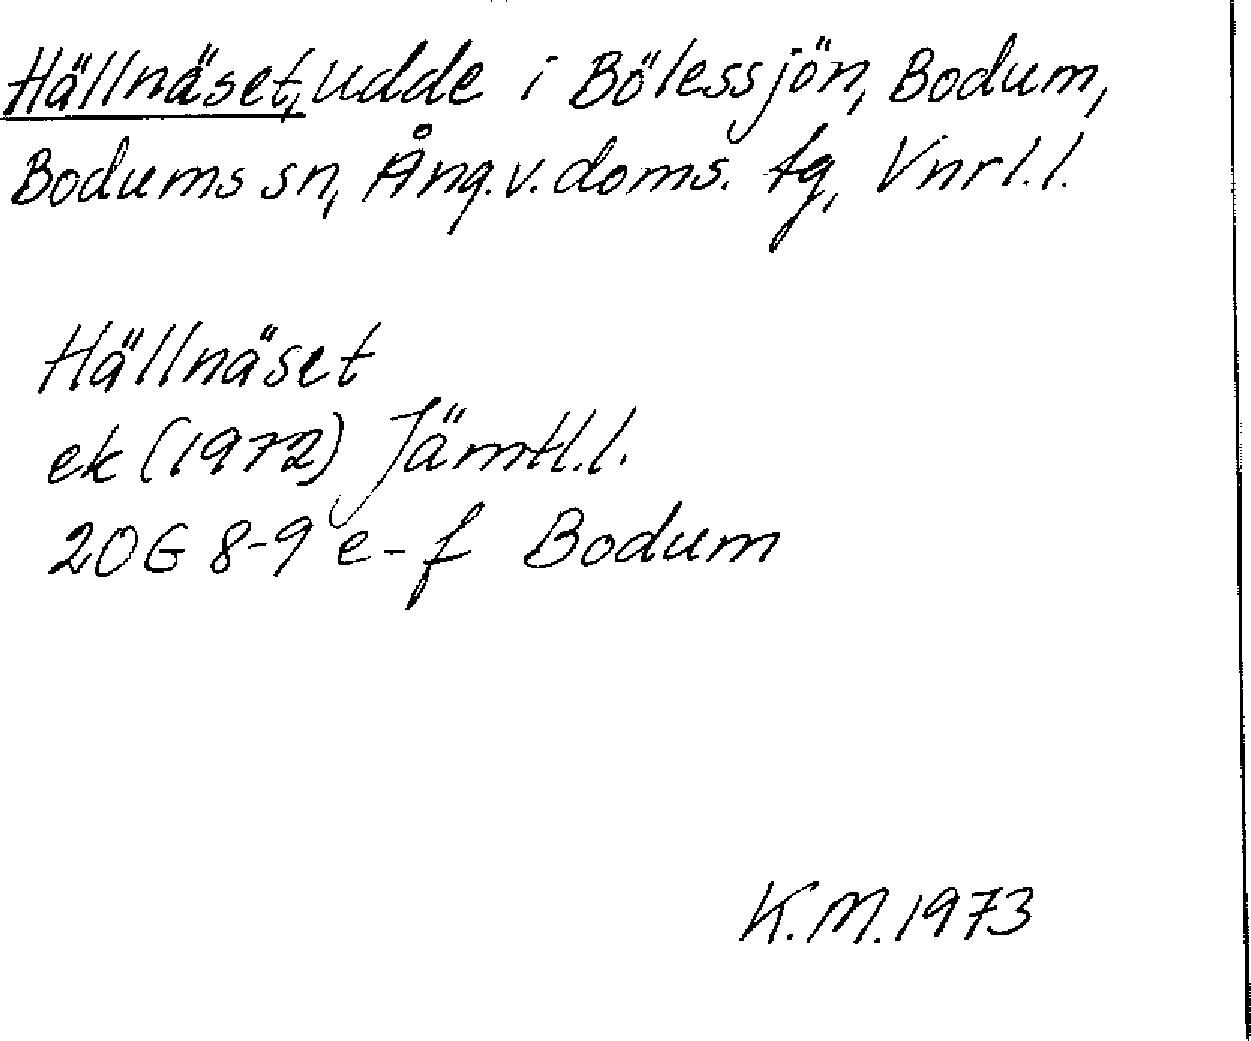 Hällnäset, udde i Bölessjön, Bodum,
Bodums sn, Ång.v.doms. tg, Vnrl.l.
Hällnäset
ek (1972) Jämtl.l.
20G 8-9 e-f Bodum
K.M.1973